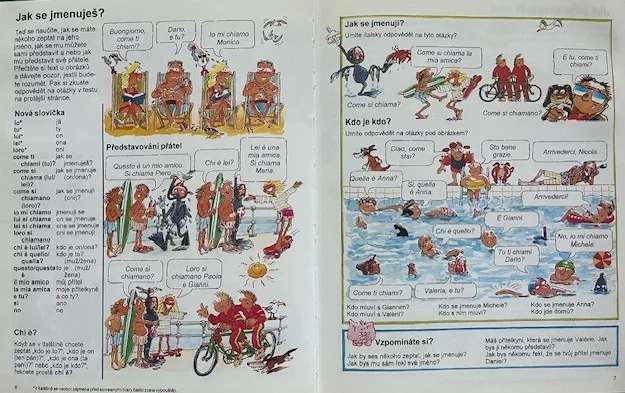 Jak se jmenuješ?
Teď se naučíte, jak se máte
někoho zeptat na jeho
jméno, jak se mu můžete
sami představit a nebo jak
mu představit své přátele.
Přečtěte si text u obrázků
a dávejte pozor, jestli bude-
te rozumět. Pak si zkuste
odpovědět na otázky v testu
na protější straně.
Nová slovíčka
io* já
tu* ty
lui* on
lei* ona
loro* oni
come ti jak se
chiami (tu)? jmenuješ?
come si jak se jmenuje
chiama (lui/ (on/ona)?
lei)?
come si jak se jmenují
chiamano (oni)?
(loro)?
io mi chiamo jmenuji se
lui si chiama on se jmenuje
lei si chiama ona se jmenuje
loro si oni se jmenují
chiamano
chi è lui/lei? kdo je on/ona?
chi è quello/ kdo je to?
quella? (muž/žena)
questo/questa to je .. (muž/
è žena)
il mio amico můj přítel
la mia amica moje přítelkyně
e tu? a co ty?
si ano
no ne
Chi è?
Když se v italštině chcete
zeptat „kdo je to?", „kdo je on
(ten pán)?", „kdo je ona (ta
paní)?" nebo „kdo je kdo?",
řeknete prostě chi è?
Buongiorno,
come ti
chiami?
Dario,
e tu?
Io mi chiamo
Monica.
Představování přátel
Questo è un mio amico.
Si chiama Piero.
Chi è lei?
Lei è una
mia amica.
Si chiama
Maria.
Come si
chiamano?
Loro si
chiamano Paolo
e Gianni.
6
Jak se jmenují?
Umíte italsky odpovědět na tyto otázky?
Come si chiama la
mia amica?
E tu, come ti
chiami?
Come si chiama?
Come si chiamano?
Kdo je kdo?
Umíte odpovědět na otázky pod obrázkem?
Ciao, come
stai?
Sto bene
grazie.
Arrivederci, Nicola.
Quella è Anna?
Si, quella
è Anna.
Arrivederci!
È Gianni.
Chi è quello?
No, io mi chiamo
Michele.
Tu ti chiami
Dario?
Come ti chiami?
Valeria, e tu?
Kdo mluví s Giannim?
Kdo se jmenuje Michele?
Kdo se jmenuje Anna?
Kdo mluví s Valérií?
Kdo s ním mluví?
Kdo jde domů?
Vzpomínáte si?
Jak by ses někoho zeptal, jak se jmenuje?
Jak bys mu sám řekl své jméno?
Máš přítelkyni, která se jmenuje Valérie. Jak
bys ji někomu představil?
Jak bys někomu řekl, že se tvůj přítel jmenuje
Daniel?
7